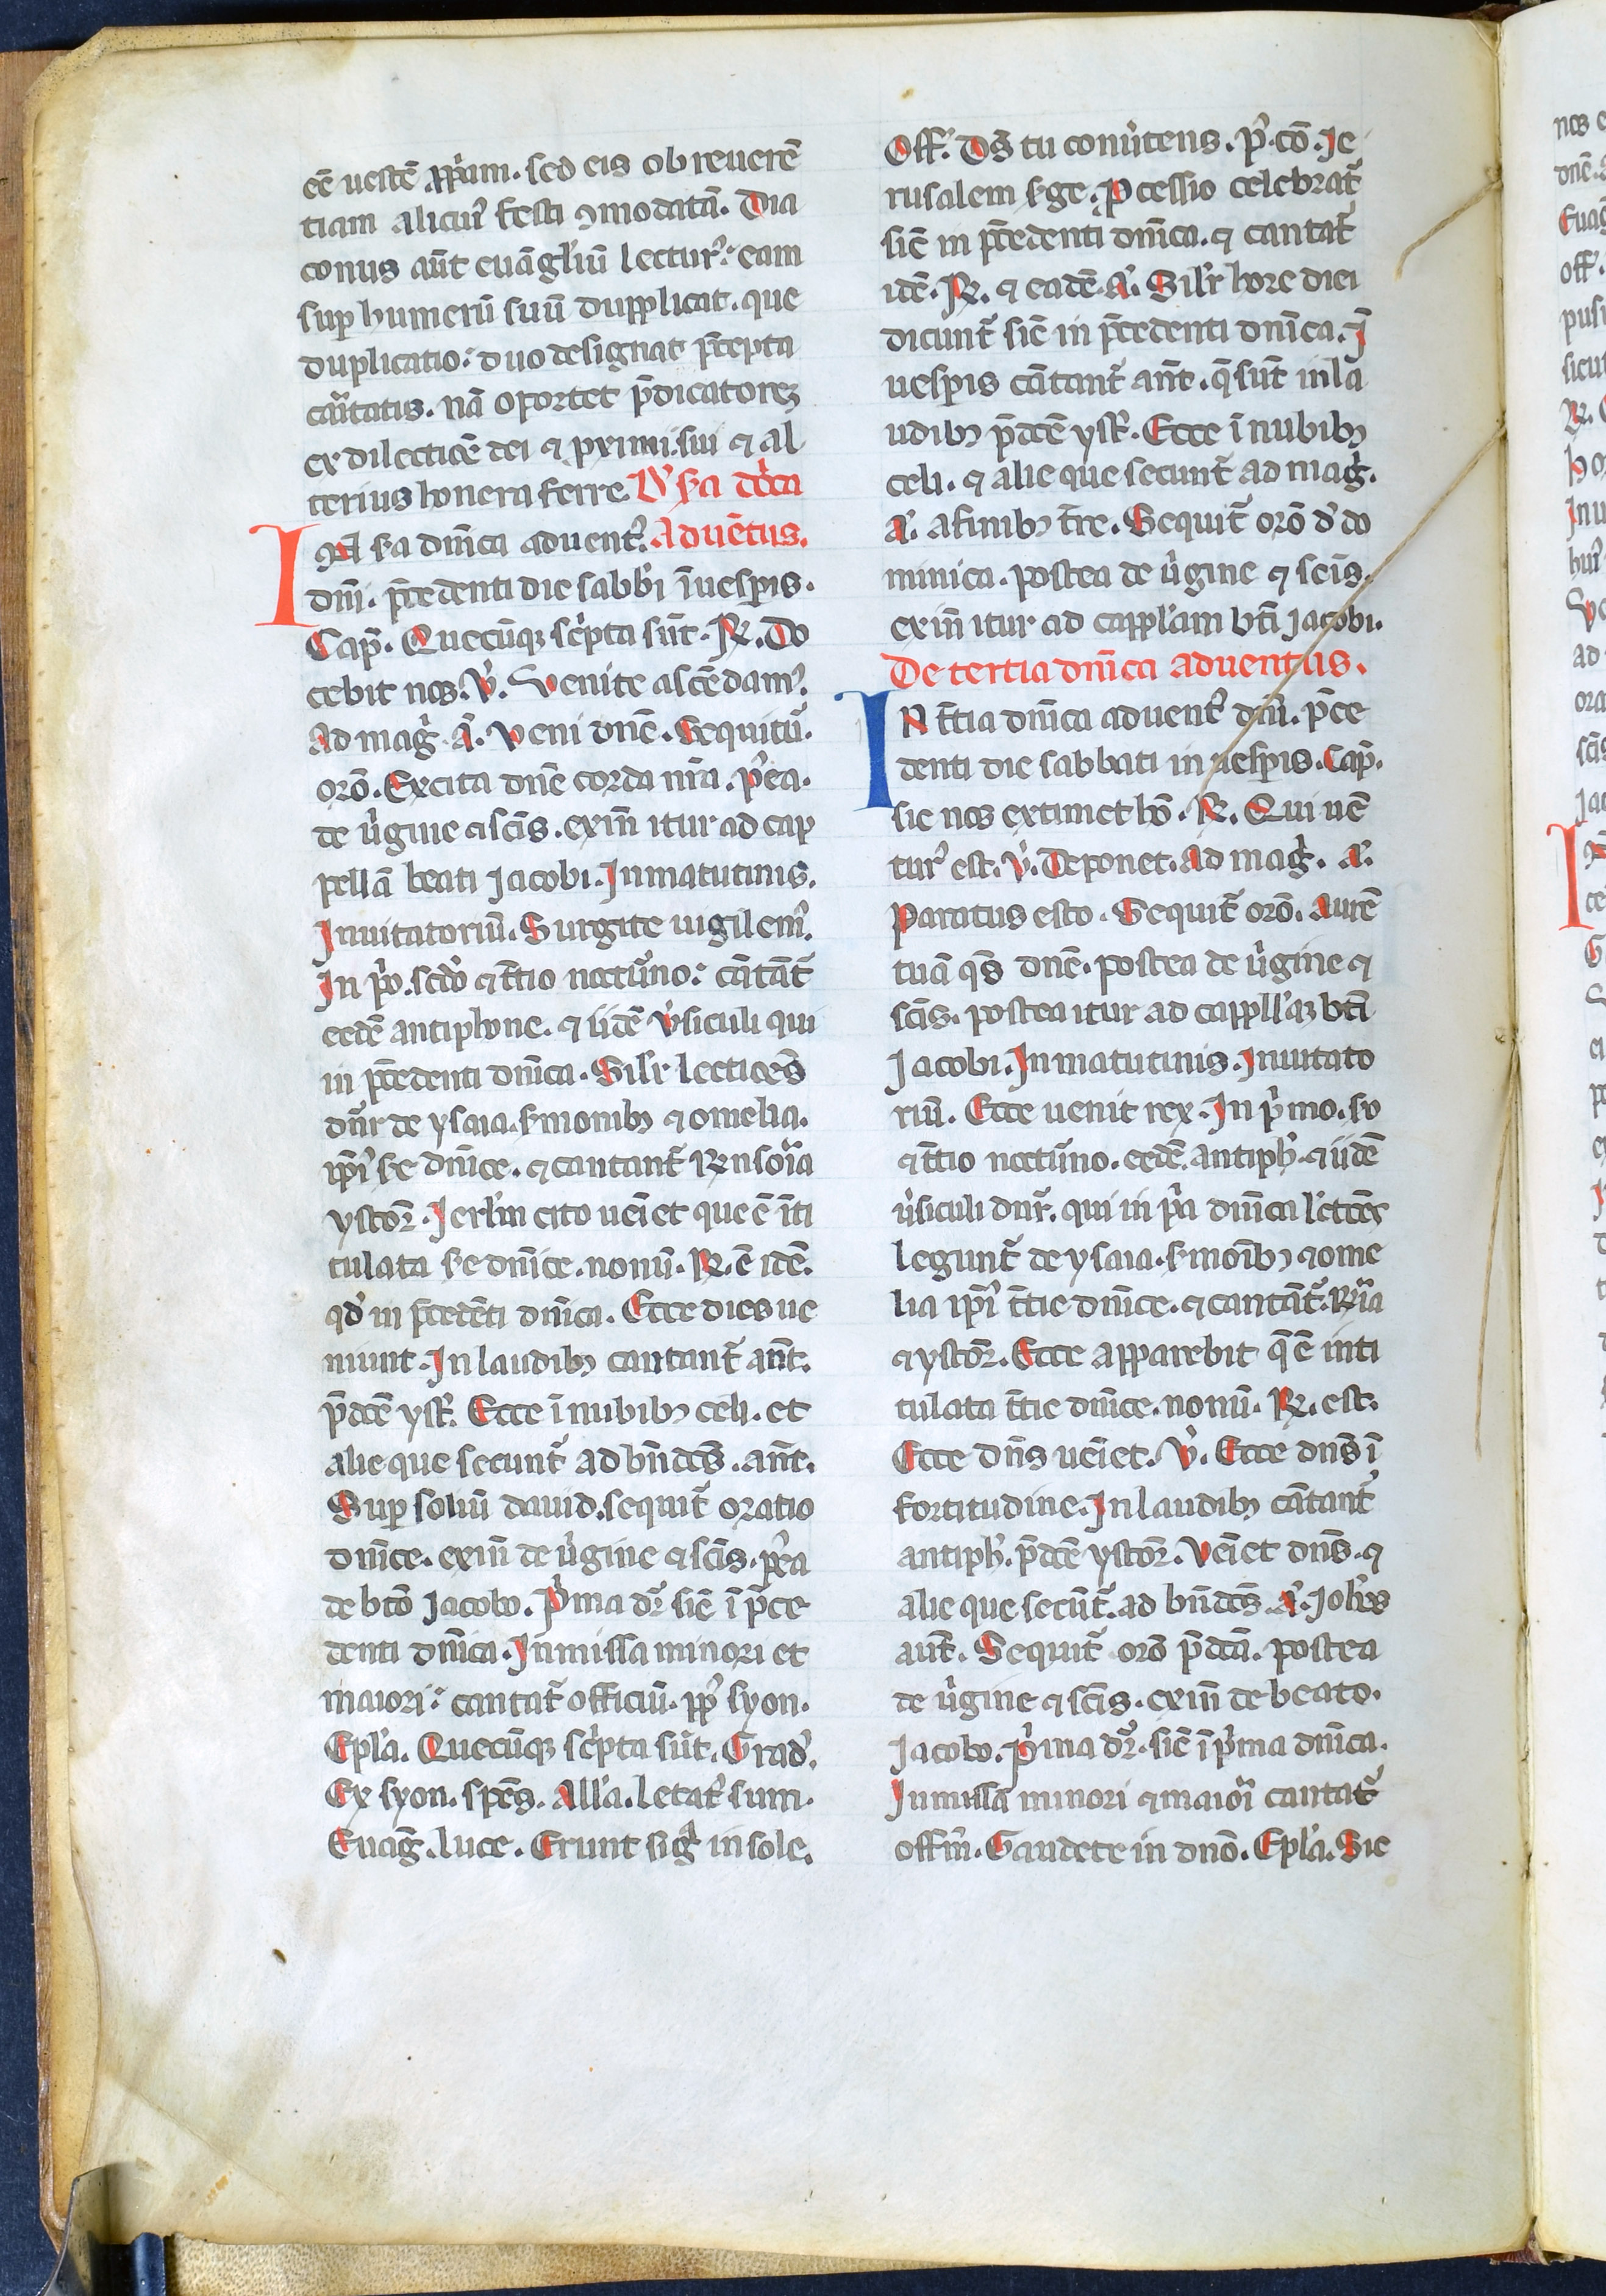 eē uestē ꝓpͥam. sed eis ob reuerē
tiam alicuiꝰ festi ꝯmodatā. Dia
conus aūt euāgl'iū lecturꝰ: eam
suꝑ humerū suū dupplicat. que
duplicatio: duo designat p̄cepta
caͥtatis. nā oportet p̄dicatorez
ex dilectiōe dei ⁊ ꝓximi sui ⁊ al
terius honera ferre.
Aduētus.
IN s̄a dn̄ica aduentꝰ.
dnī. p̄cedenti die sabbi ī uesꝑis.
Cap̄. Quecūqꝫ scͥpta sūt. ℟. Do
cebit nos. ℣. Venite ascēdamꝰ.
Ad maḡ. aᷓ. Veni dn̄e. Sequitu᷑.
orō. Excita dn̄e corda nr̄a. p̄ea.
de uͥgine ⁊ scīs. exin̄ itur ad cap
pellā beati Jacobi. In matutinis.
Inuitatoriū. Surgite uigilemꝰ.
In pͥo. scd̓o ⁊ t̄tio noctu᷑no: cātāt᷑
eedē antiphone. ⁊ iidē ꝟsiculi qui
in p̄cedenti dn̄ica. Silr̓ lectiōes
dn̄r de ysaia. s̄monibꝫ ⁊ omelia.
ip̄iꝰ se dn̄ice. ⁊ cantant᷑ ℟nsoͥa
ystorꝫ. Jerl'm cito uēiet que ē īti
tulata se dn̄ice. nonū. ℟. ē idē.
qd̓ in p̄cedēti dn̄ica. Ecce dies ue
niunt. In laudibꝫ cantant᷑ an̄t.
p̄dc̄e yst̓. Ecce ī nubibꝫ celi. et
alie que secunt᷑ ad bn̄dc̄s. an̄t.
Suꝑ soliū dauid. sequit᷑ oratio
dn̄ice. exin̄ de uͥgine ⁊ scīs. p̄ea
de btō Jacobo. Pͥma dr̄ sic̄ ī p̄ce
denti dn̄ica. In missa minori et
maiori: cantat᷑ officiū. pp̄s syon.
Epl'a. Quecūqꝫ scͥpta sūt. Grad̓.
Ex syon. spēs. All'a. letatꝰ sum.
Euāg. luce. Erunt sigͣ in sole.
Off̓. Ds̄ tu conuͥtens. p̓. cō. Je
rusalem s̄ge. Ꝓcessio celebrat᷑
sic̄ in p̄cedenti dn̄ica. ⁊ cantat᷑
idē. ℟. ⁊ eadē. aᷓ. Silr̓ hore diei
dicunt᷑ sic̄ in p̄cedenti dn̄ica. Ī
uesꝑis cātant᷑ an̄t. q̄ sūt in la
udibꝫ p̄dc̄e yst̓. Ecce ī nubibꝫ
celi. ⁊ alie que secunt᷑ ad maḡ.
aᷓ. a finibꝫ t̄re. Sequit᷑ orō d̓ do
minica. postea de uͥgine ⁊ scīs.
exin̄ itur ad cappl'am btī Jacobi.
De tertia dn̄ica aduentus.
IN t̄tia dn̄ica aduentꝰ dnī. p̄ce
denti die sabbati in uesꝑis. Cap̄.
sic nos extimet hō. ℟. Qui uē
turꝰ est. ℣. Deponet. Ad maḡ. aᷓ.
Paratus esto. Sequit᷑ orō. Aurē
tuā qs̄ dn̄e. postea de uͥgine ⁊
scīs. postea itur ad cappll'aꝫ btī
Jacobi. In matutinis. Inuitato
riū. Ecce uenit rex. In pͥmo. so
⁊ t̄tio noctu᷑no. eedē antiph̓. ⁊ iidē
uͥsiculi dn̄r. qui in pͥa dn̄ica l'ctōes
legunt᷑ de ysaia. s̄moībꝫ ⁊ ome
lia ip̄iꝰ t̄tie dn̄ice. ⁊ cantāt᷑. ℟ͥa
⁊ ystorꝫ. Ecce apparebit q̄ ē inti
tulata t̄tie dn̄ice. nonū. ℟. est.
Ecce dn̄s uēiet. ℣. Ecce dn̄s ī
fortitudine. In laudibꝫ cātant᷑
antiph̓. p̄dc̄e ystorꝫ. Vēiet dn̄s. ⁊
alie que secūt᷑. ad bn̄dc̄s. aᷓ. Joh̓es
aūt. Sequit᷑ orō p̄dc̄a. postea
de uͥgine ⁊ scīs. exin̄ de beato.
Jacobo. Pͥma dr̄. sic̄ ī pͥma dn̄ica.
In missa minori ⁊ maioͥi cantat᷑
offm̄. Gaudete in dn̄o. Epl'a. Sic